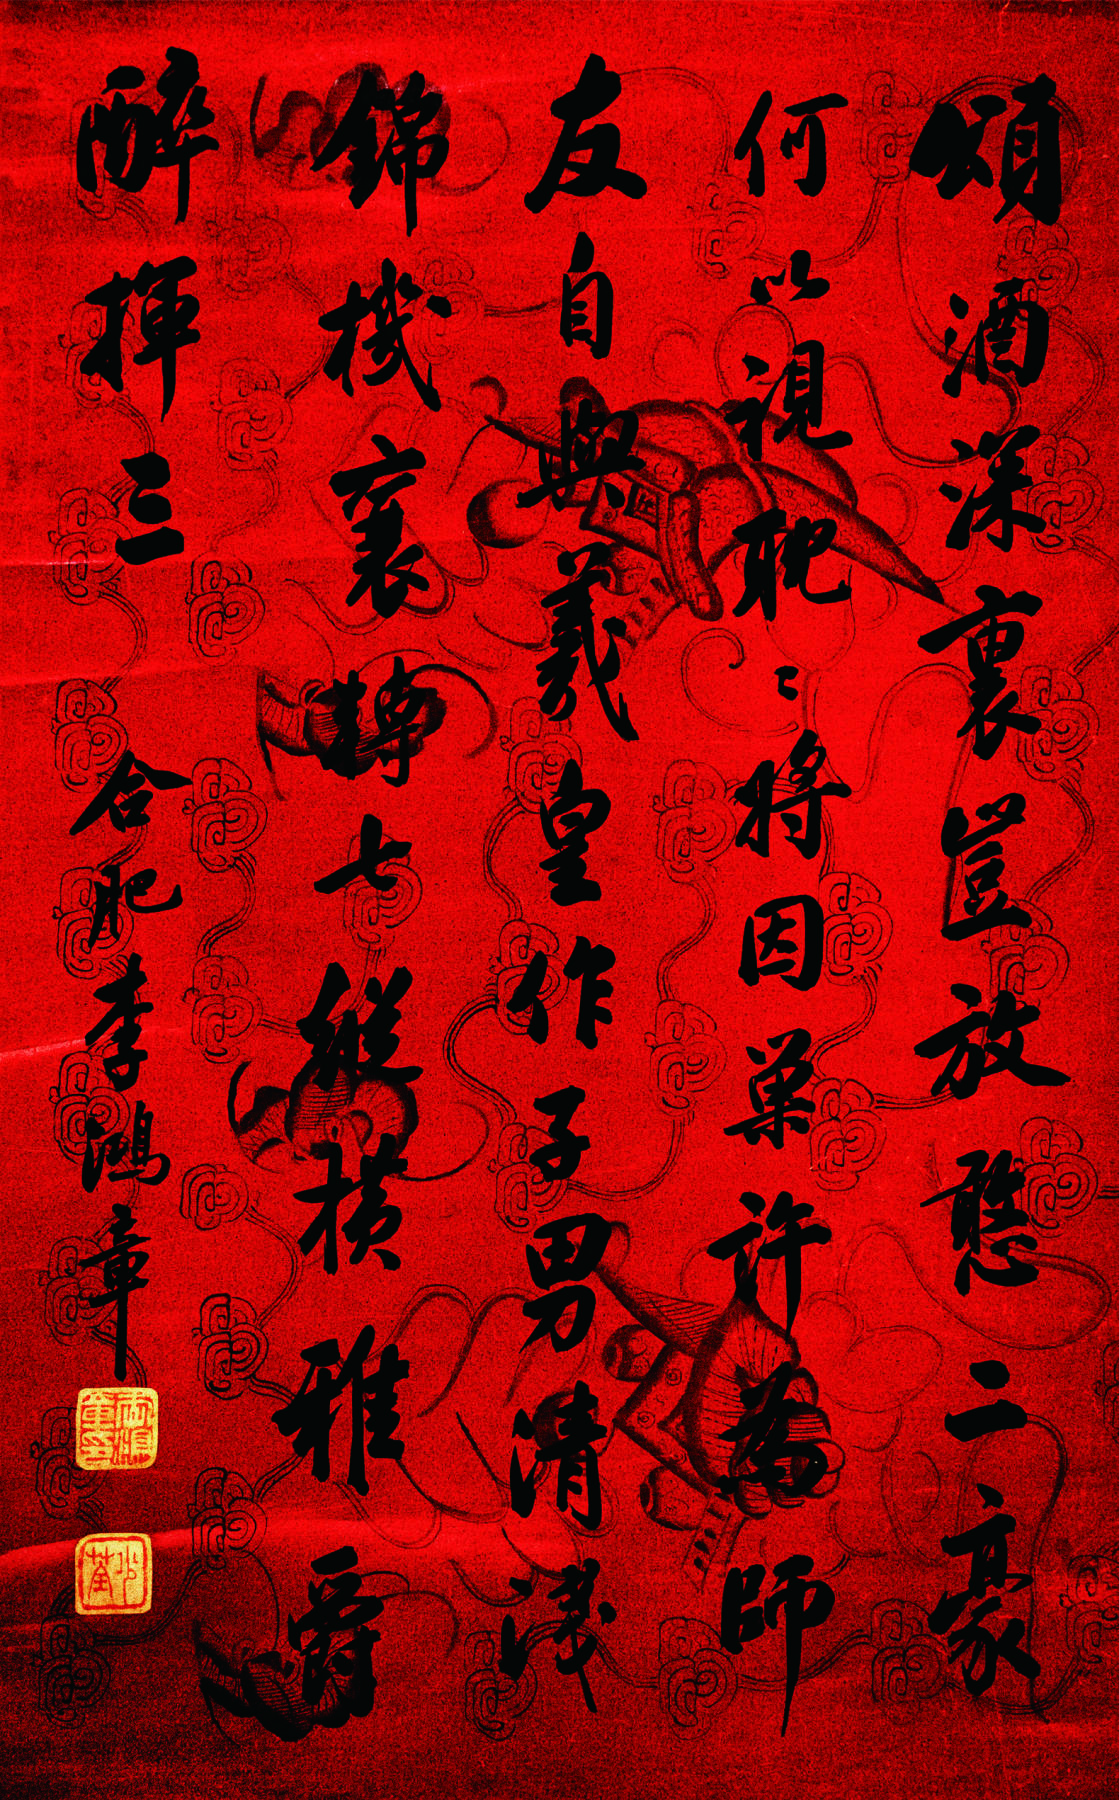 頌酒深裏豈放憨二豪
何以視耽〻將因巢許為師
友自與羲皇作子男清淺
錦機裏轉七縱橫雅爵
醉揮三
合肥李鴻章
少荃